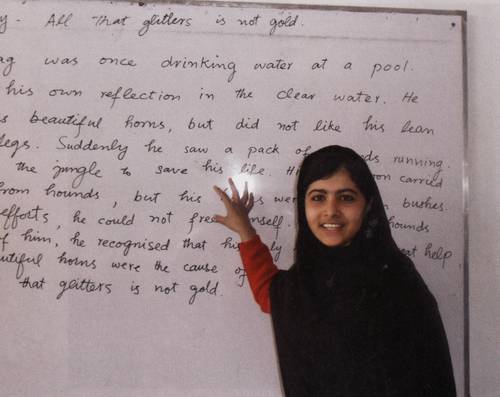 y - All that glitters is not gold.
ag was once drinking water at a pool.
his own reflection in the clear water. He
s beautiful horns, but did not like his lean
legs. Suddenly he saw a pack of ds running.
the jungle to save his life. Hi on carried
from hounds, but his s wer bushes.
efforts, he could not free mself. hounds
f him, he recognised that h ly eat help
utiful horns were the cause of
that glitters is not gold.